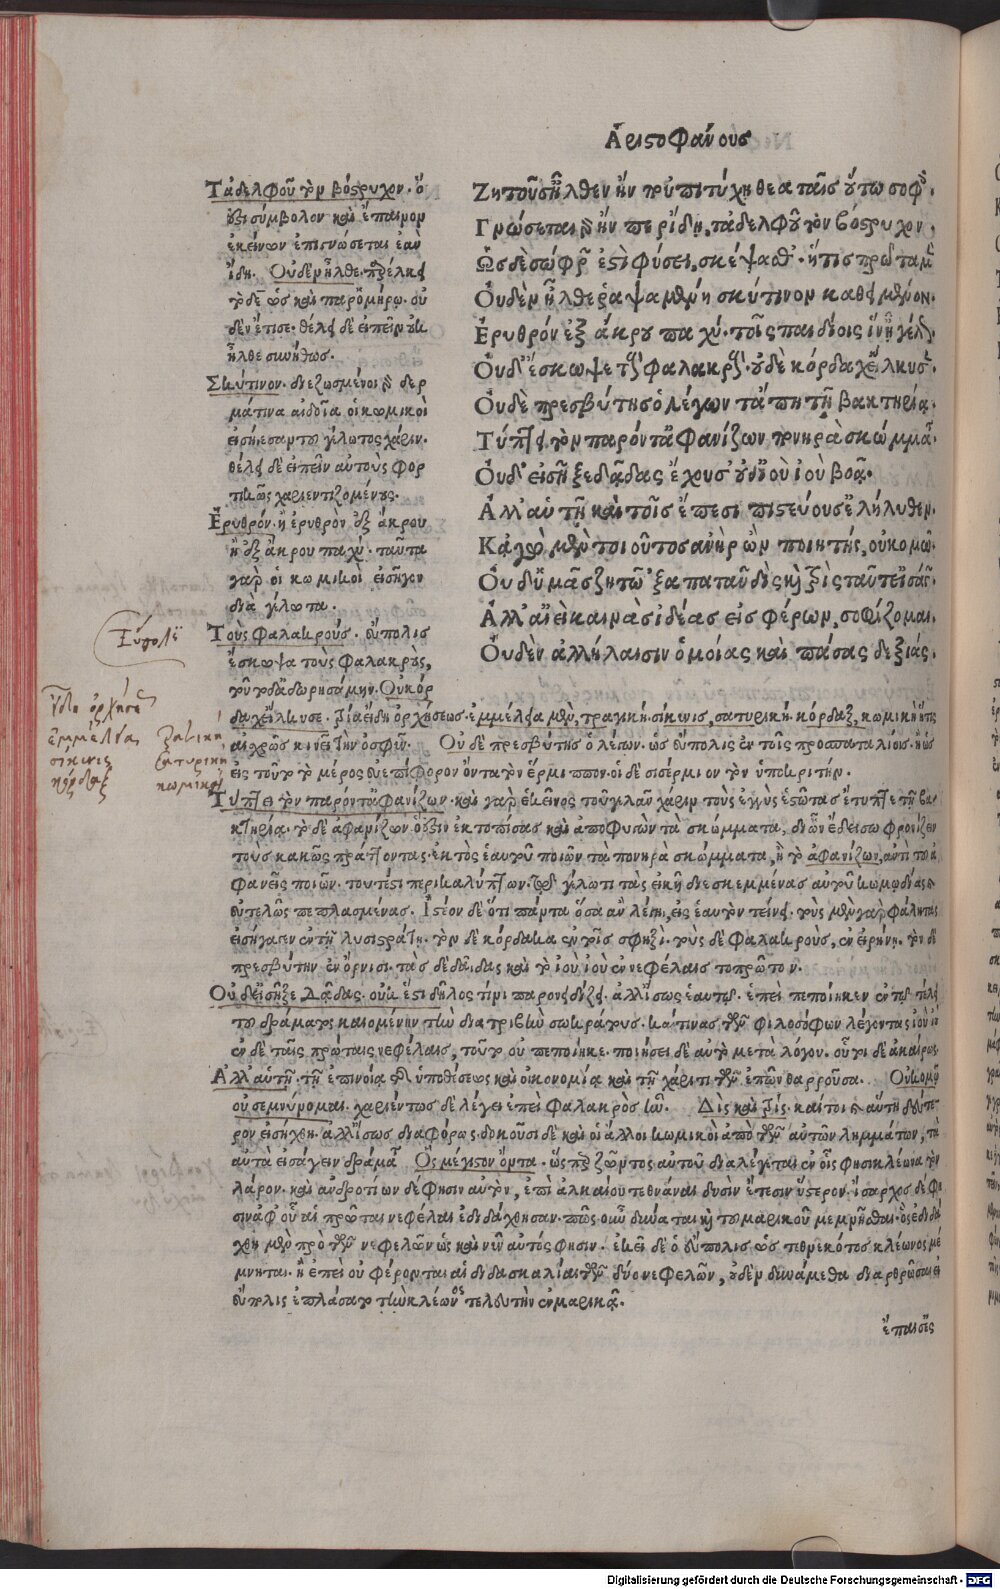 Ἀριστοφάνους
Ζητοῦσ' ἦλθεν ἤν που 'πιτύχῃ θεαταῖς οὕτω σοφοῖς.
Γνώσεται γὰρ ἤν περ ἴδῃ, τἀδελφοῦ τὸν βόστρυχον.
Ὡς δὲ σώφρων ἐστὶ φύσει, σκέψασθ'. ἥτις πρῶτα μὲν
Οὐδὲν ἦλθε ῥαψαμένη σκύτινον καθειμένον.
Ἐρυθρὸν ἐξ ἄκρου παχύ. τοῖς παιδίοις ἵν' ᾖ γέλως.
Οὐδ' ἔσκωψε τοὺς φαλακρούς. οὐδὲ κόρδαχ' εἵλκυσεν.
Οὐδὲ πρεσβύτης ὁ λέγων τἄπη τῇ βακτηρίᾳ.
Τύπτει τὸν παρόντ' ἀφανίζων πονηρὰ σκώμματα.
Οὐδ' εἰσῇξε δᾷδας ἔχουσ' οὐδ' ἰοὺ ἰοὺ βοᾷ.
Ἀλλ' αὑτῇ καὶ τοῖς ἔπεσι πιστεύουσ' ἐλήλυθεν.
Κἀγὼ μὲν τοιοῦτος ἀνὴρ ὢν ποιητής, οὐ κομῶ.
Οὐδ' ὑμᾶς ζητῶ 'ξαπατᾶν δὶς καὶ τρὶς ταὔτ' εἰσάγων.
Ἀλλ' αἰεὶ καινὰς ἰδέας εἰσφέρων, σοφίζομαι.
Οὐδὲν ἀλλήλαισιν ὁμοίας καὶ πάσας δεξιάς.
Τἀδελφοῦ τὸν βόστρυχον. ὅ
ἐστι σύμβολον καὶ ἔπαινον
ἐκείνων ἐπιγνώσεται ἐὰν
ἴδῃ. Οὐδὲν ἦλθε. παρέλκει
τὸ δὲ ὡς καὶ παρ' ὁμήρῳ. οὐ
δὲν ἔτισε. θέλει δὲ εἰπεῖν οὐκ
ἦλθε συνήθως.
Σκύτινον. διεζωσμένοι γὰρ δερ
μάτινα αἰδοῖα οἱ κωμικοὶ
εἰσῄεσαν τοῦ γέλωτος χάριν.
θέλει δὲ εἰπεῖν αὐτοὺς φορ
τικῶς χαριεντιζομένους.
Ἐρυθρόν. ἢ ἐρυθρὸν ἐξ ἄκρου
ἢ ἐξ ἄκρου παχύ. ταῦτα
γὰρ οἱ κωμικοὶ εἰσῆγον
διὰ γέλωτα.
Τοὺς φαλακρούς. εὔπολις
ἔσκωψα τοὺς φαλακρούς,
Οὐ κόρ
δαχ' εἵλκυσε. τρία εἴδη ὀρχήσεως. ἐμμέλεια μὲν, τραγική. σίκινις, σατυρική. κόρδαξ, κωμικὴ ἥτις
αἰσχρῶς κινεῖ τὴν ὀσφῦν. Οὐδὲ πρεσβύτης ὁ λέγων. ὡς εὔπολις ἐν τοῖς προσπαλτίοις. ἢ ὡς
Τύπτει τὸν παρόντ' ἀφανίζων. καὶ γὰρ ἐκεῖνος τοῦ γελᾶν χάριν τοὺς ἐγγὺς ἑστῶτας ἔτυπτε τῇ βα
τοὺς κακῶς πράττοντας. ἐκτὸς ἑαυτοῦ ποιῶν τὰ πονηρὰ σκώμματα, ἢ τὸ ἀφανίζων, ἀντὶ τοῦ ἀ
φανεῖς ποιῶν. τουτέστι περικαλύπτων τῷ γέλωτι τὰς εἰκῆ διεσκεμμένας αὐτοῦ κωμῳδίας
εὐτελῶς πεπλασμένας. Ἰστέον δὲ ὅτι πάντα ὅσα ἂν λέγῃ, εἰς ἑαυτὸν τείνει. τοὺς μὲν γὰρ φάλητας
εἰσήγαγεν ἐν τῇ λυσιστράτῃ. τὸν δὲ κόρδακα ἐν τοῖς σφηξί. τοὺς δὲ φαλακροὺς, ἐν εἰρήνῃ. τὸν δὲ
πρεσβύτην ἐν ὄρνισι. τὰς δὲ δᾷδας καὶ τὸ ἰοὺ ἰοὺ ἐν νεφέλαις τὸ πρῶτον.
τοῦ δράματος καιομένην τὴν διατριβὴν σωκράτους. καί τινας τῶν φιλοσόφων λέγοντας ἰοὺ ἰού
ἐν δὲ ταῖς πρώταις νεφέλαις, τοῦτο οὐ πεποίηκε. ποιήσει δὲ αὐτὸ μετὰ λόγου. οὐχὶ δὲ ἀκαίρως
Ἀλλ' αὑτῇ. τῇ ἐπινοίᾳ τῆς ὑποθέσεως καὶ οἰκονομίᾳ καὶ τῇ χάριτι τῶν ἐπῶν θαρροῦσα. Οὐ κομῶ
οὐ σεμνύνομαι. χαριέντως δὲ λέγει ἐπεὶ φαλακρὸς ἦν. Δὶς καὶ τρίς. καίτοι γε αὕτη δεύτε
ρον εἰσήχθη. ἄλλως διαφόρως. δοκοῦσι δὲ καὶ οἱ ἄλλοι κωμικοὶ ἀπὸ τῶν αὐτῶν λημμάτων, τὰ
αὐτὰ εἰσάγειν δράματα Ὃς μέγιστον ὄντα. ὡς περὶ ζῶντος αὐτοῦ διαλέγεται ἐν οἷς φησι κλέωνα τὸν
λάρον. καὶ ἀνδροτίων δέ φησιν αὐτὸν, ἐπὶ ἀλκαίου τεθνάναι δυσὶν ἔτεσιν ὕστερον. ἴσαρχος δέ φη
σιν ἀφ' οὗ αἱ πρῶται νεφέλαι ἐδιδάχθησαν. πῶς οὖν δύναται καὶ τοῦ μαρικοῦ μεμνῆσθαι. ὃς ἐδιδά
χθη μὲν πρὸ τῶν νεφελῶν ὡς καὶ νῦν αὐτός φησιν. ἐκεῖ δὲ ὁ εὔπολις ὡς τεθνηκότος κλέωνος μέ
μνηται. ἢ ἐπεὶ οὐ φέρονται αἱ διδασκαλίαι τῶν δύο νεφελῶν, οὐδὲν δυνάμεθα διαρθρῶσαι εἰ
εὔπολις ἐπλάσατο τὴν κλέωνος τελευτὴν ἐν μαρικᾷ.
ἐμμέλεια τραγική
σίκινις σατυρική
κόρδαξ κωμική
Digitalisierung gefördert durch die Deutsche Forschungsgemeinschaft - DFG